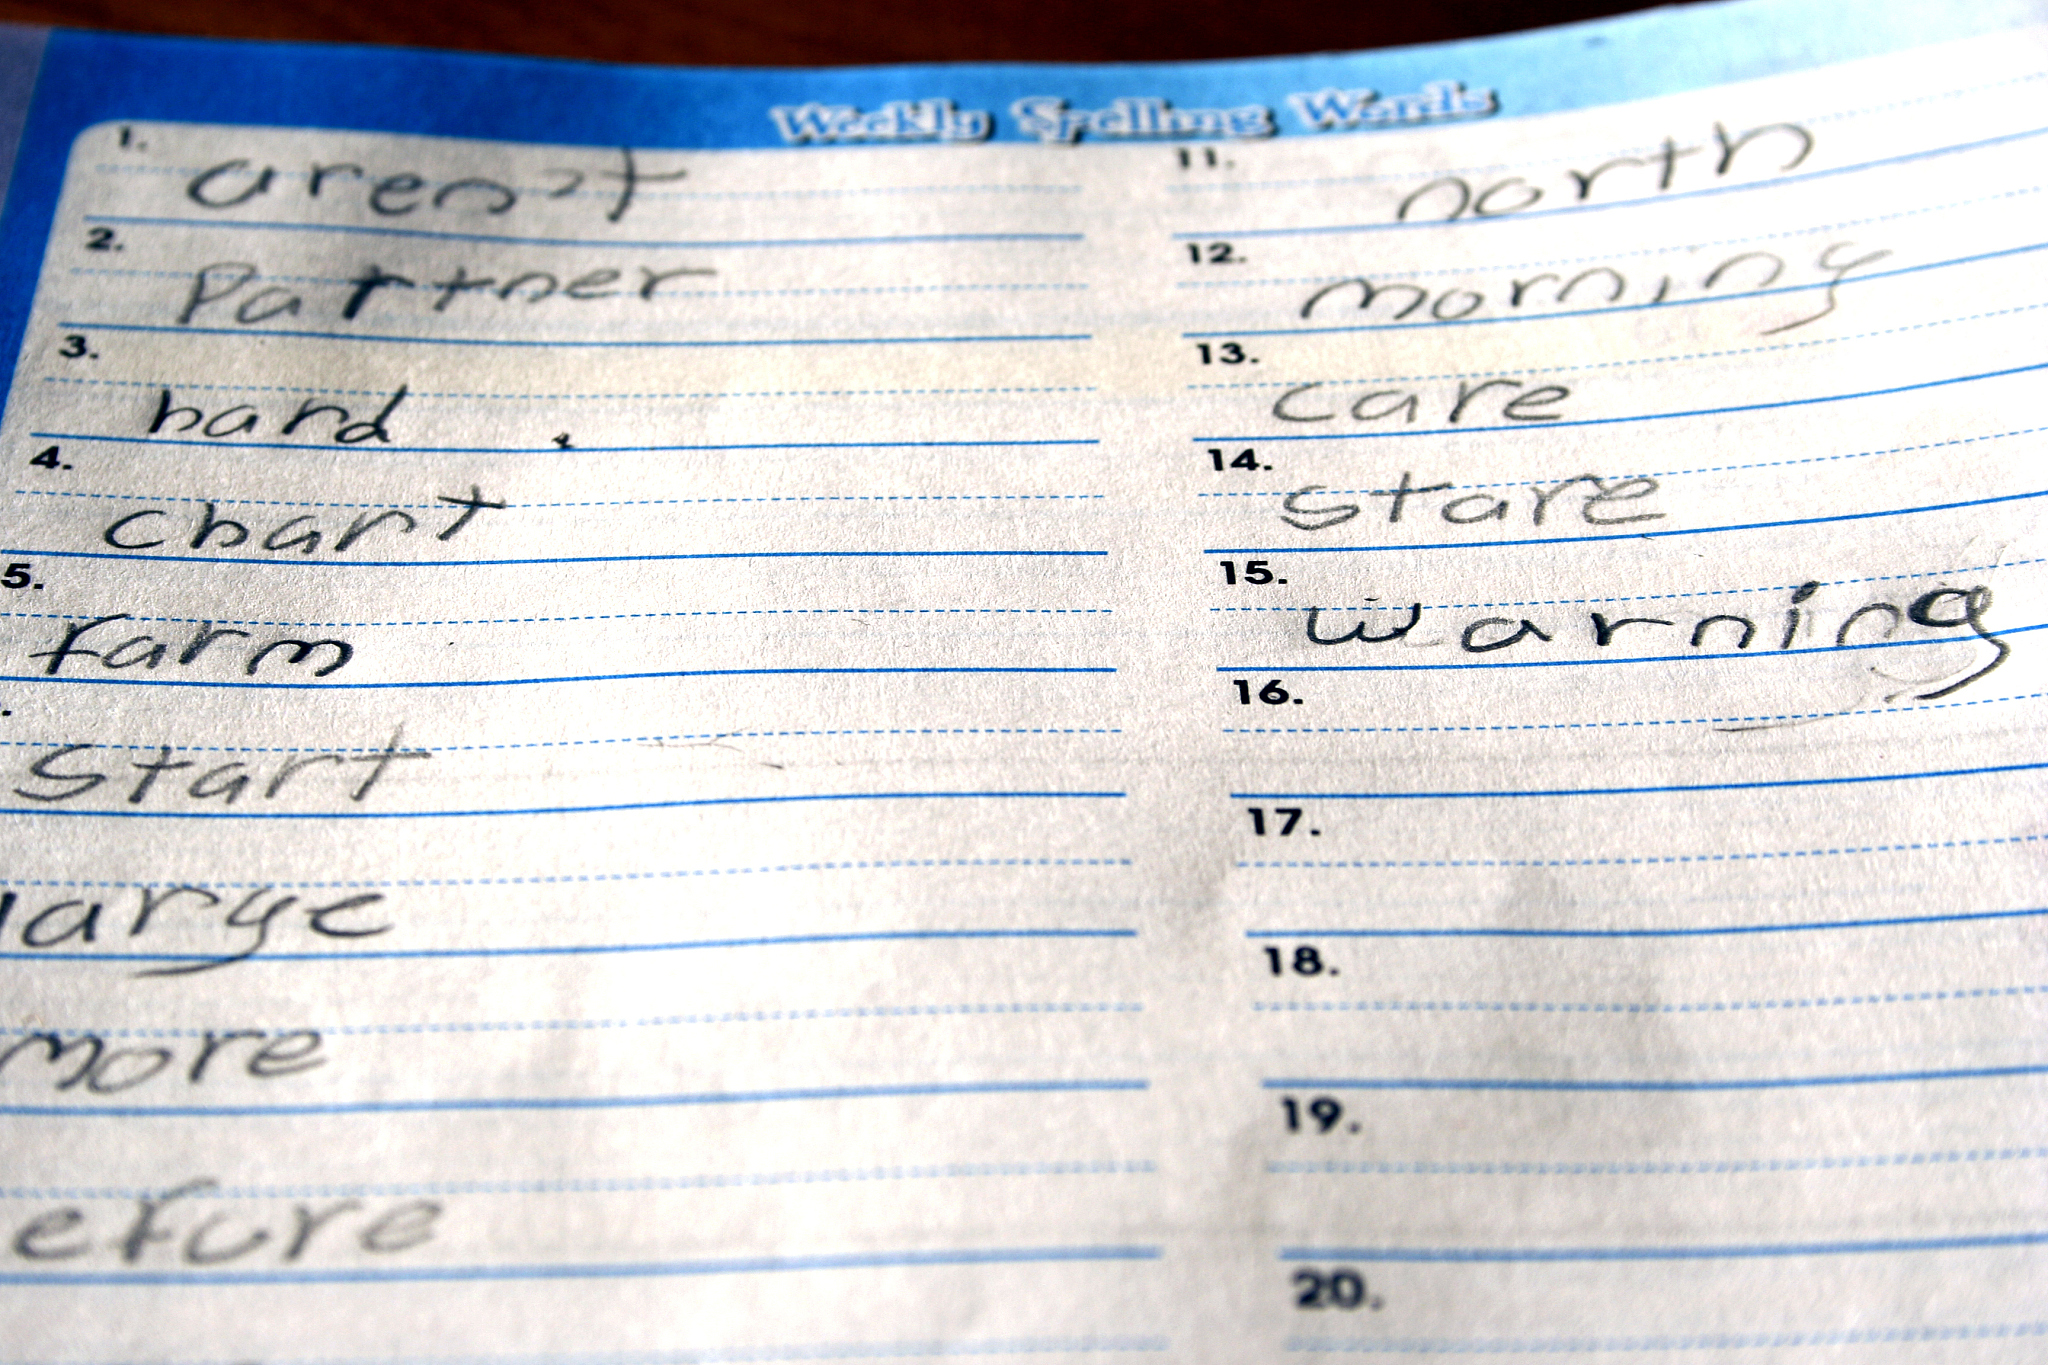 Weekly Spelling Words
1. aren't
2. Partner
3. hard
4. chart
5. farm
start
large
more
efore
11. north
12. morning
13. care
14. stare
15. warning
16.
17.
18.
19.
20.